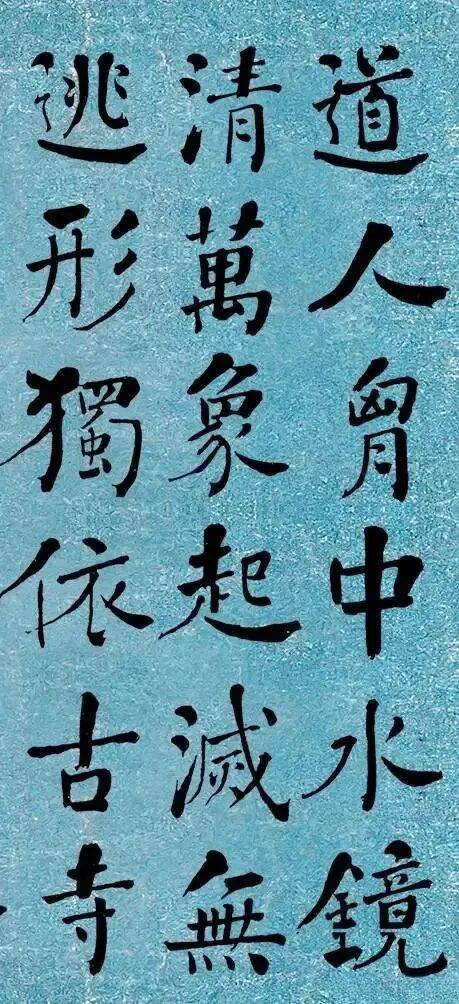 道人胷中水鏡
清萬象起滅無
逃形獨依古寺